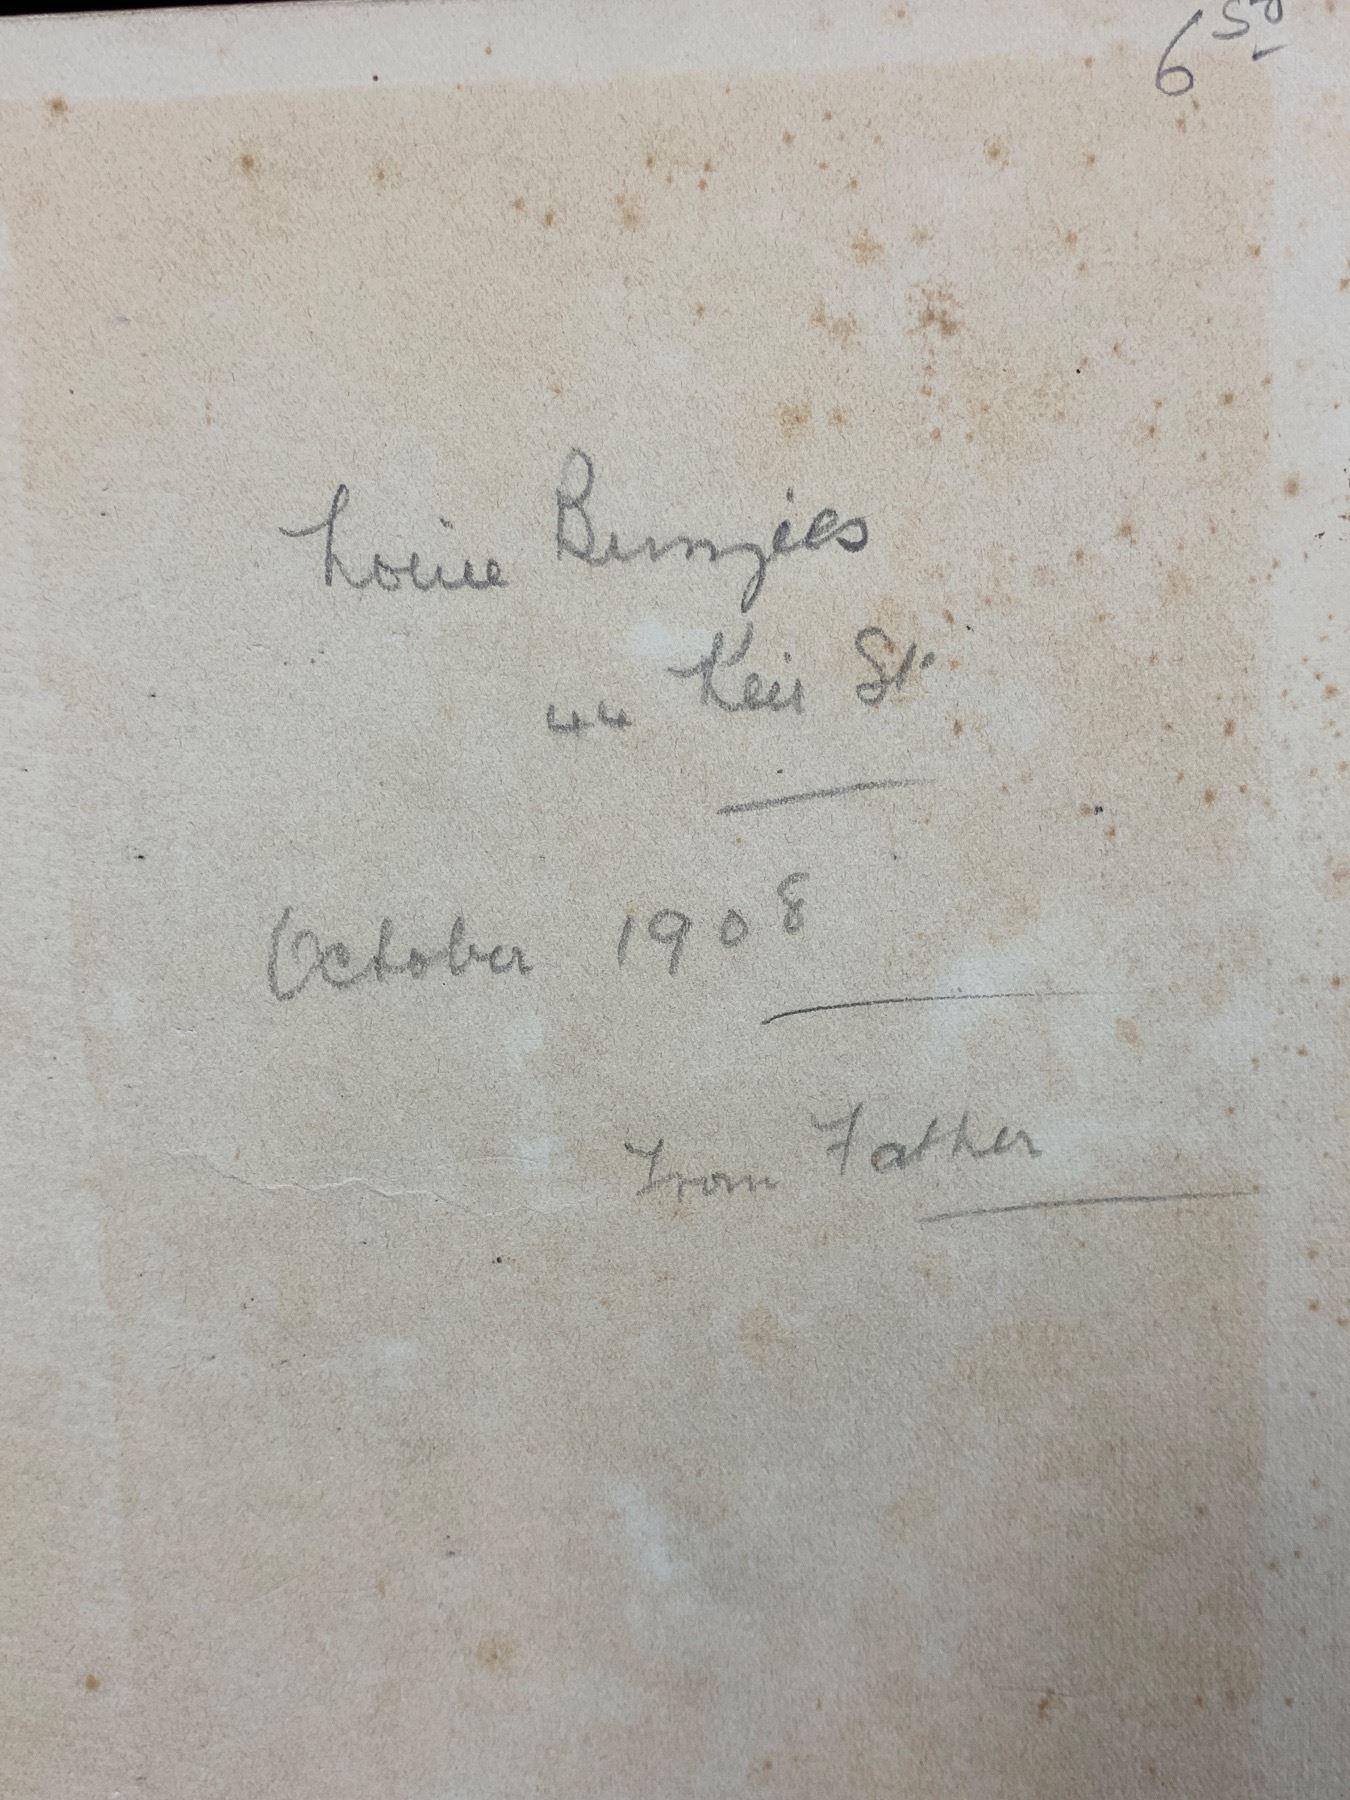 6 50
Louie
44 Keir St.
October 1908
From Father